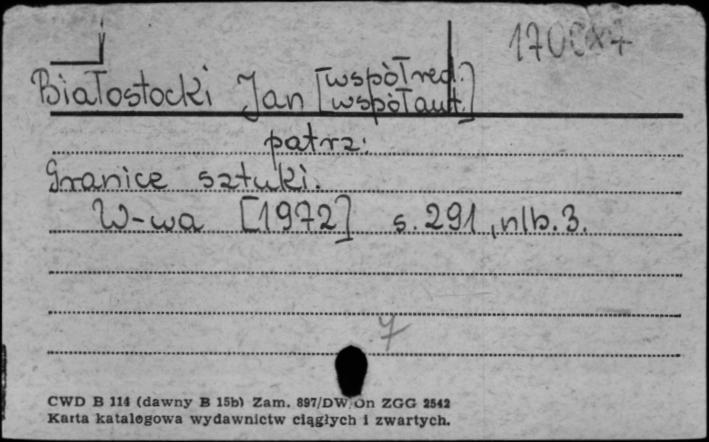 Białostocki Jan [współred.
współaut.]
patrz:
Granice sztuki.
W-wa [1972] s. 291, nlb. 3.
7
CWD B 114 (dawny B 15b) Zam. 897/DW/On ZGG 2542
Karta katalogowa wydawnictw ciągłych i zwartych.